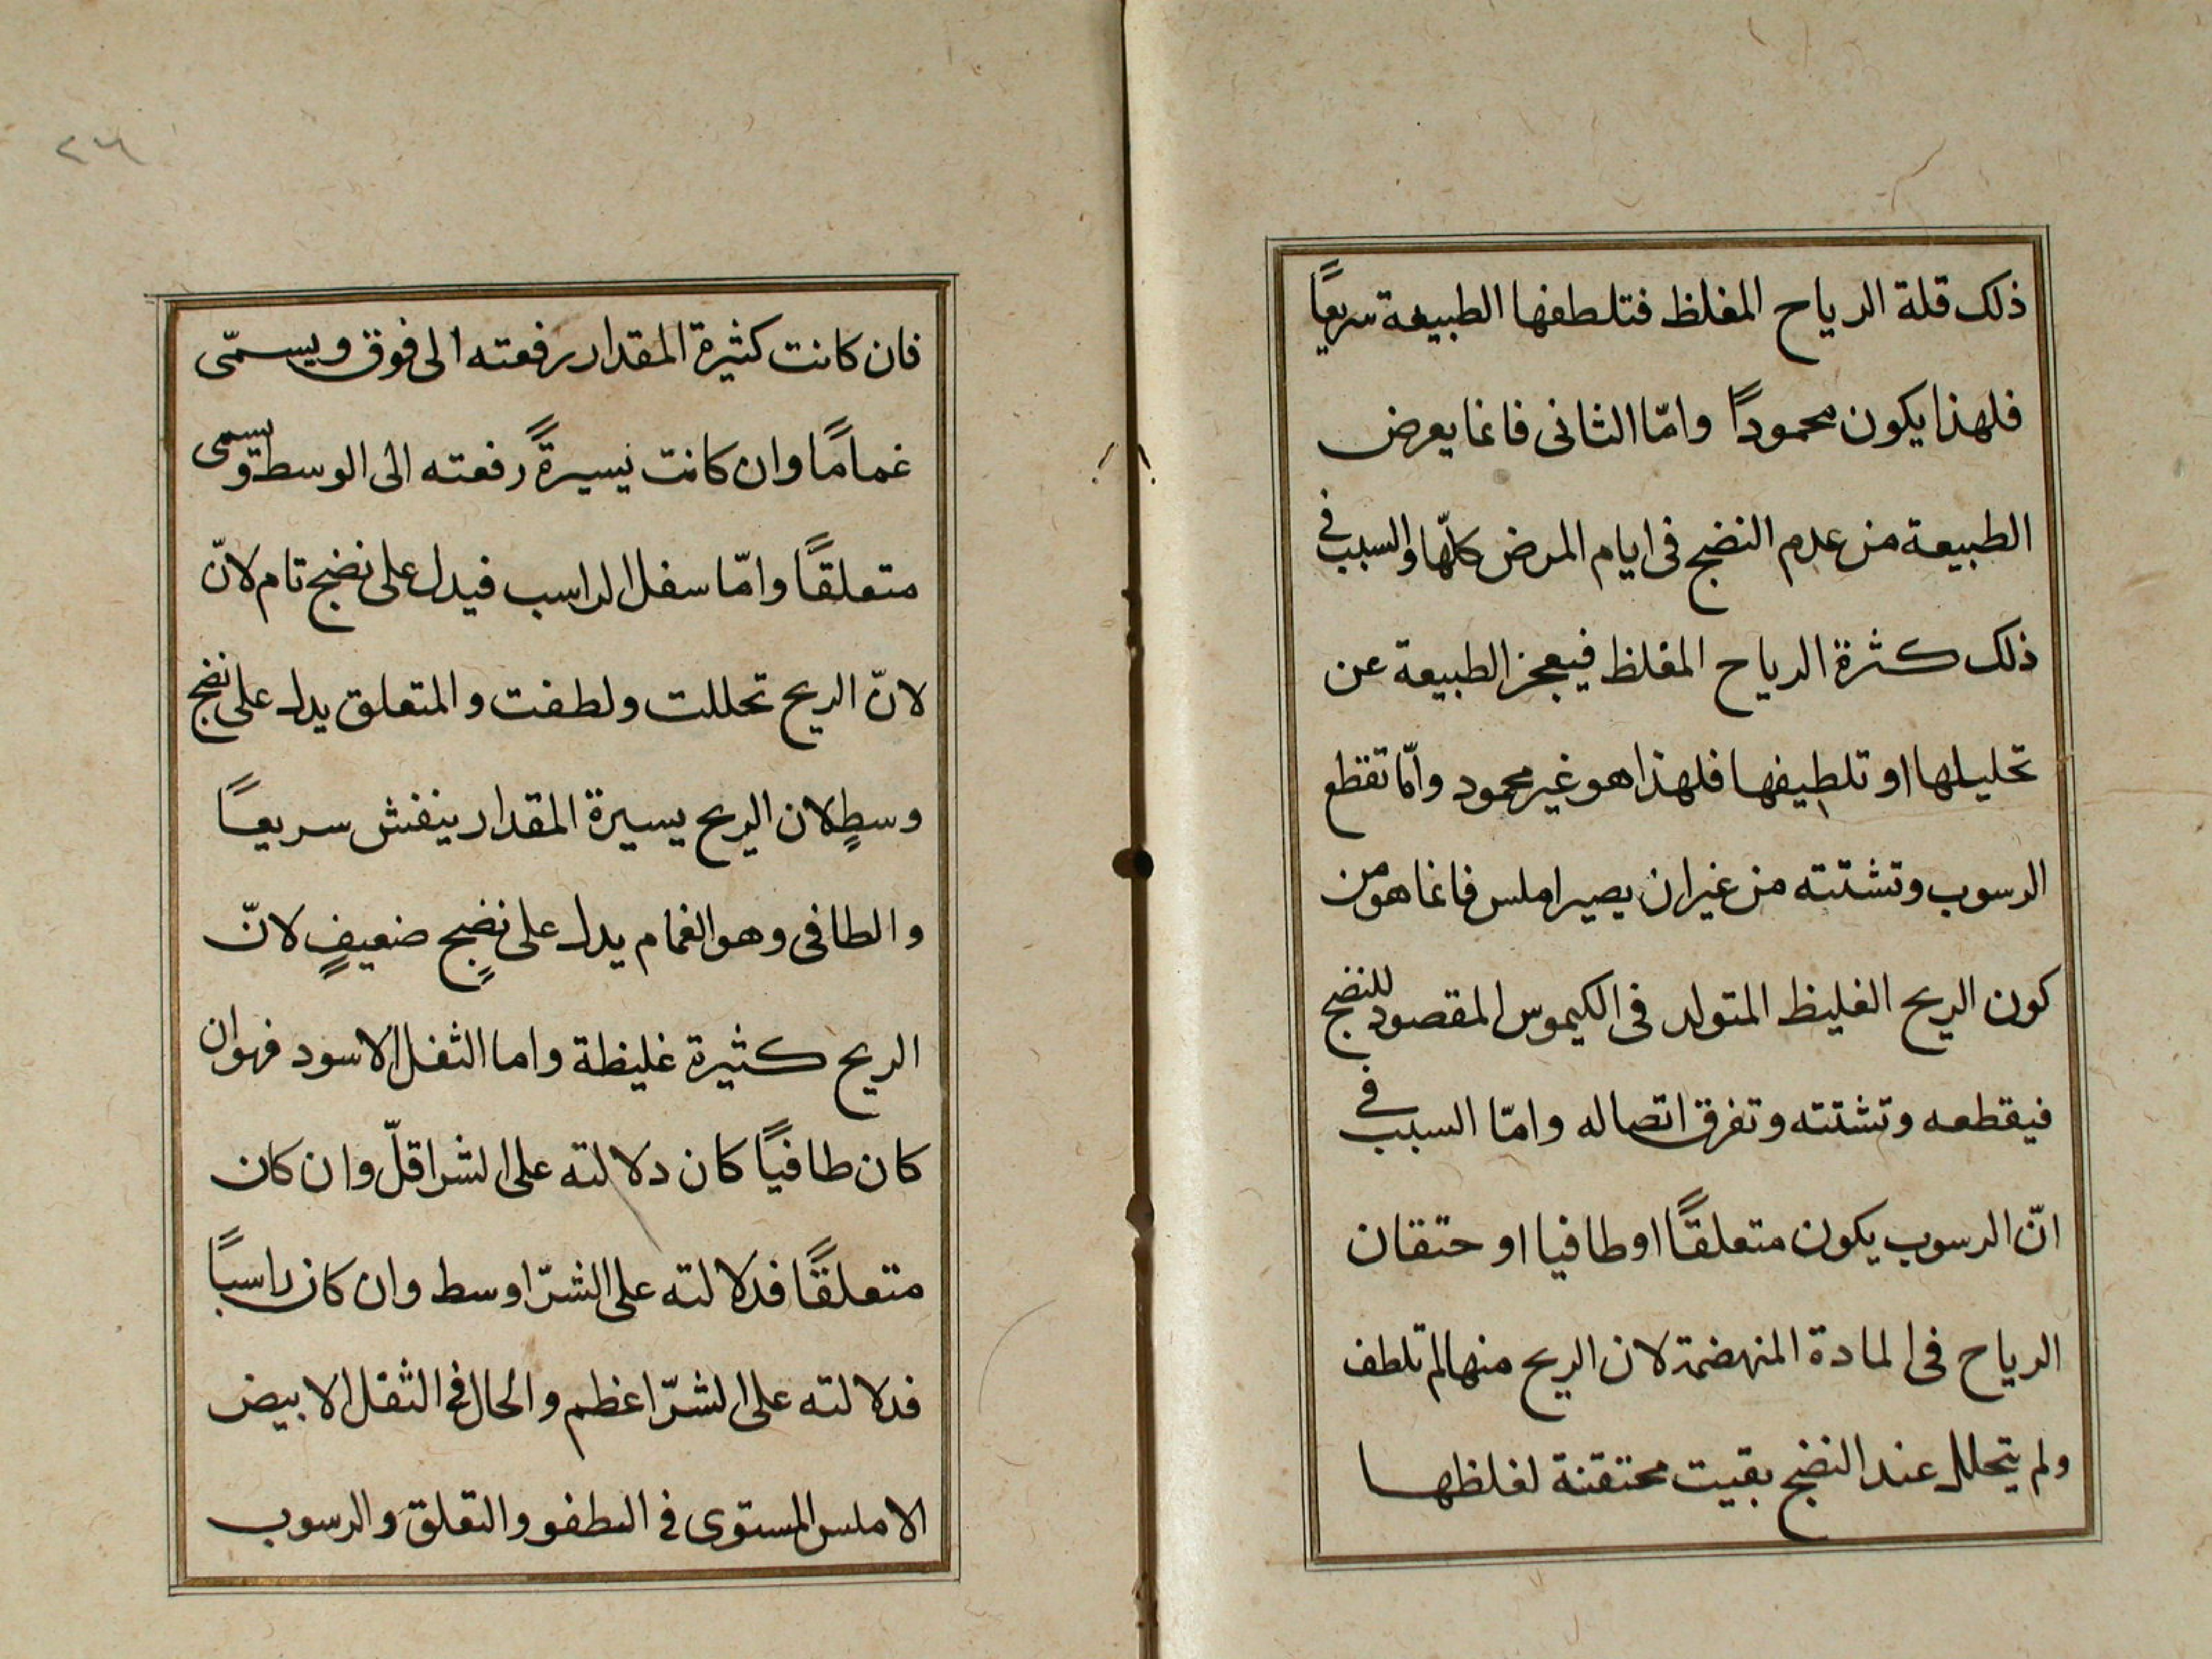 ذلك قلة الرياح المغلظ فتلطفها الطبيعة سريعًا
فلهذا يكون محمودًا وامّا الثانى فانما يعرض
الطبيعة من عدم النضج فى ايام المرض كلّها والسبب فى
ذلك كثرة الرياح المغلظ فيعجز الطبيعة عن
تحليلها او تلطيفها فلهذا هو غير محمود وامّا تقطع
الرسوب وتشتته من غير ان يصير املس فانما هو من
كون الريح الغليظ المتولد فى الكيموس المقصود للنضج
فيقطعه وتشتته وتفرق اتصاله وامّا السبب فى
انّ الرسوب يكون متعلقًا او طافيا او حتقان
الرياح فى المادة المنهضمة لان الريح منها لم تلطف
ولم يتحلل عند النضج بقيت محتقنة لغلظها
٢٦
فان كانت كثيرة المقدار رفعته الى فوق ويسمّى
غمامًا وان كانت يسيرةً رفعته الى الوسط ويسمى
متعلقًا وامّا سفل الراسب فيدل على نضج تام لانّ
لانّ الريح تحللت ولطفت والمتعلق يدل على نضج
وسطٍ لان الريح يسيرة المقدار ينفش سريعًا
والطافى وهو الغمام يدل على نضجٍ ضعيفٍ لانّ
الريح كثيرة غليظة واما الثفل الاسود فهو ان
كان طافيًا كان دلالته على الشر اقلّ وان كان
متعلقًا فدلالته على الشرّ اوسط وان كان راسبًا
فدلالته على الشرّ اعظم والحال فى الثفل الابيض
الاملس المستوى فى الطفو والتعلق والرسوب